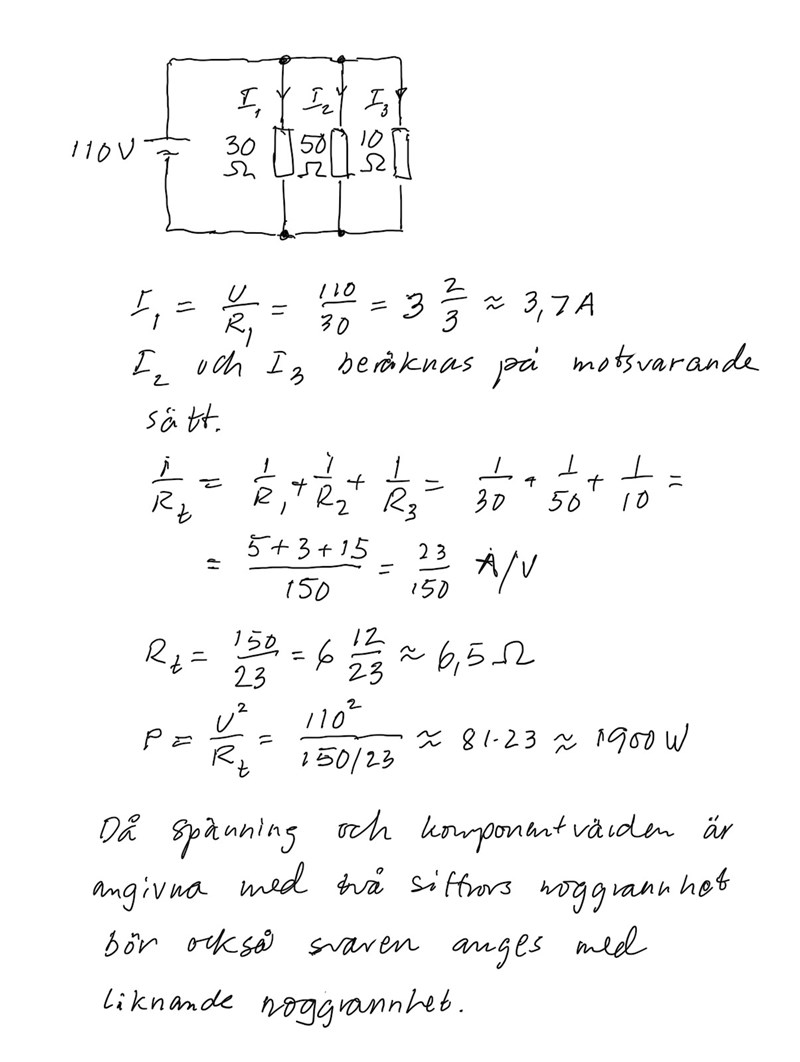 I₁ I₂ I₃
110V 30 Ω 50 Ω 10 Ω
I₁ = U/R₁ = 110/30 = 3 2/3 ≈ 3,7A
I₂ och I₃ beräknas på motsvarande
sätt.
1/Rₜ = 1/R₁ + 1/R₂ + 1/R₃ = 1/30 + 1/50 + 1/10 =
= (5+3+15)/150 = 23/150 A/V
Rₜ = 150/23 = 6 12/23 ≈ 6,5 Ω
P = U²/Rₜ = 110²/(150/23) ≈ 81·23 ≈ 1900 W
Då spänning och komponentvärden är
angivna med två siffrors noggrannhet
bör också svaren anges med
liknande noggrannhet.